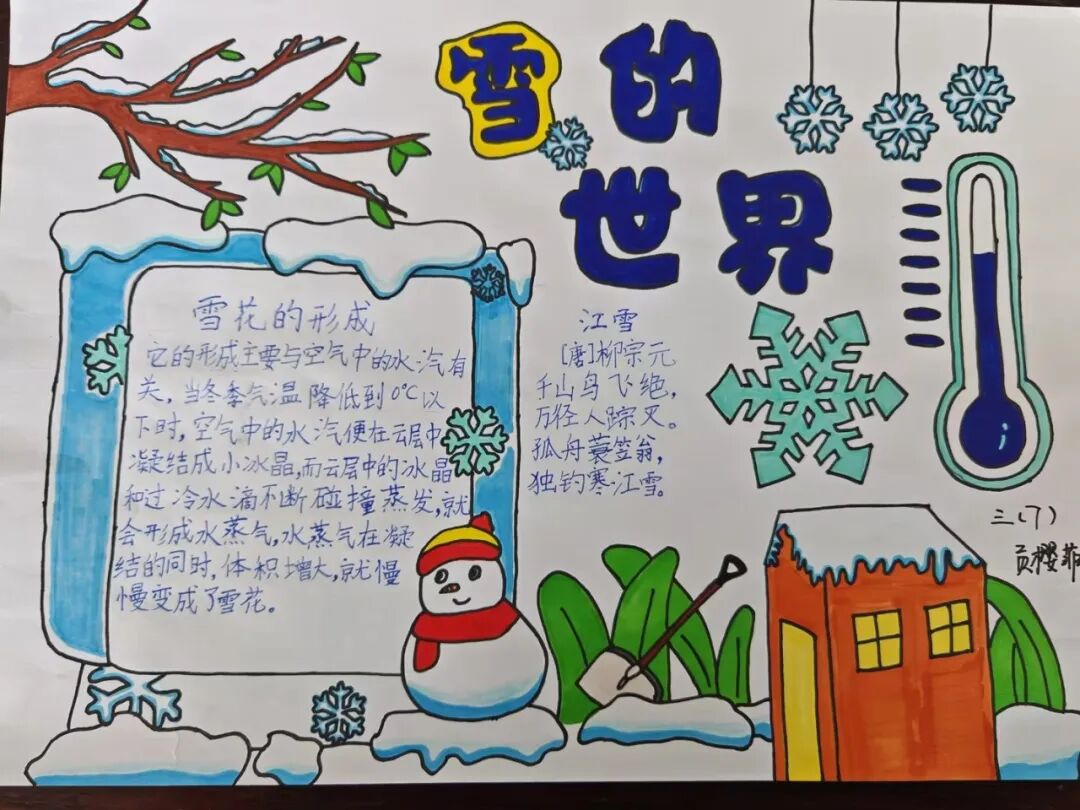 雪的
世界
雪花的形成
它的形成主要与空气中的水汽有
关，当冬季气温降低到0℃以
下时，空气中的水汽便在云层中
凝结成小冰晶，而云层中的冰晶
和过冷水滴不断碰撞蒸发，就
会形成水蒸气，水蒸气在凝
结的同时，体积增大，就慢
慢变成了雪花。
江雪
[唐]柳宗元
千山鸟飞绝，
万径人踪灭。
孤舟蓑笠翁，
独钓寒江雪。
三(7)
贡樱菲